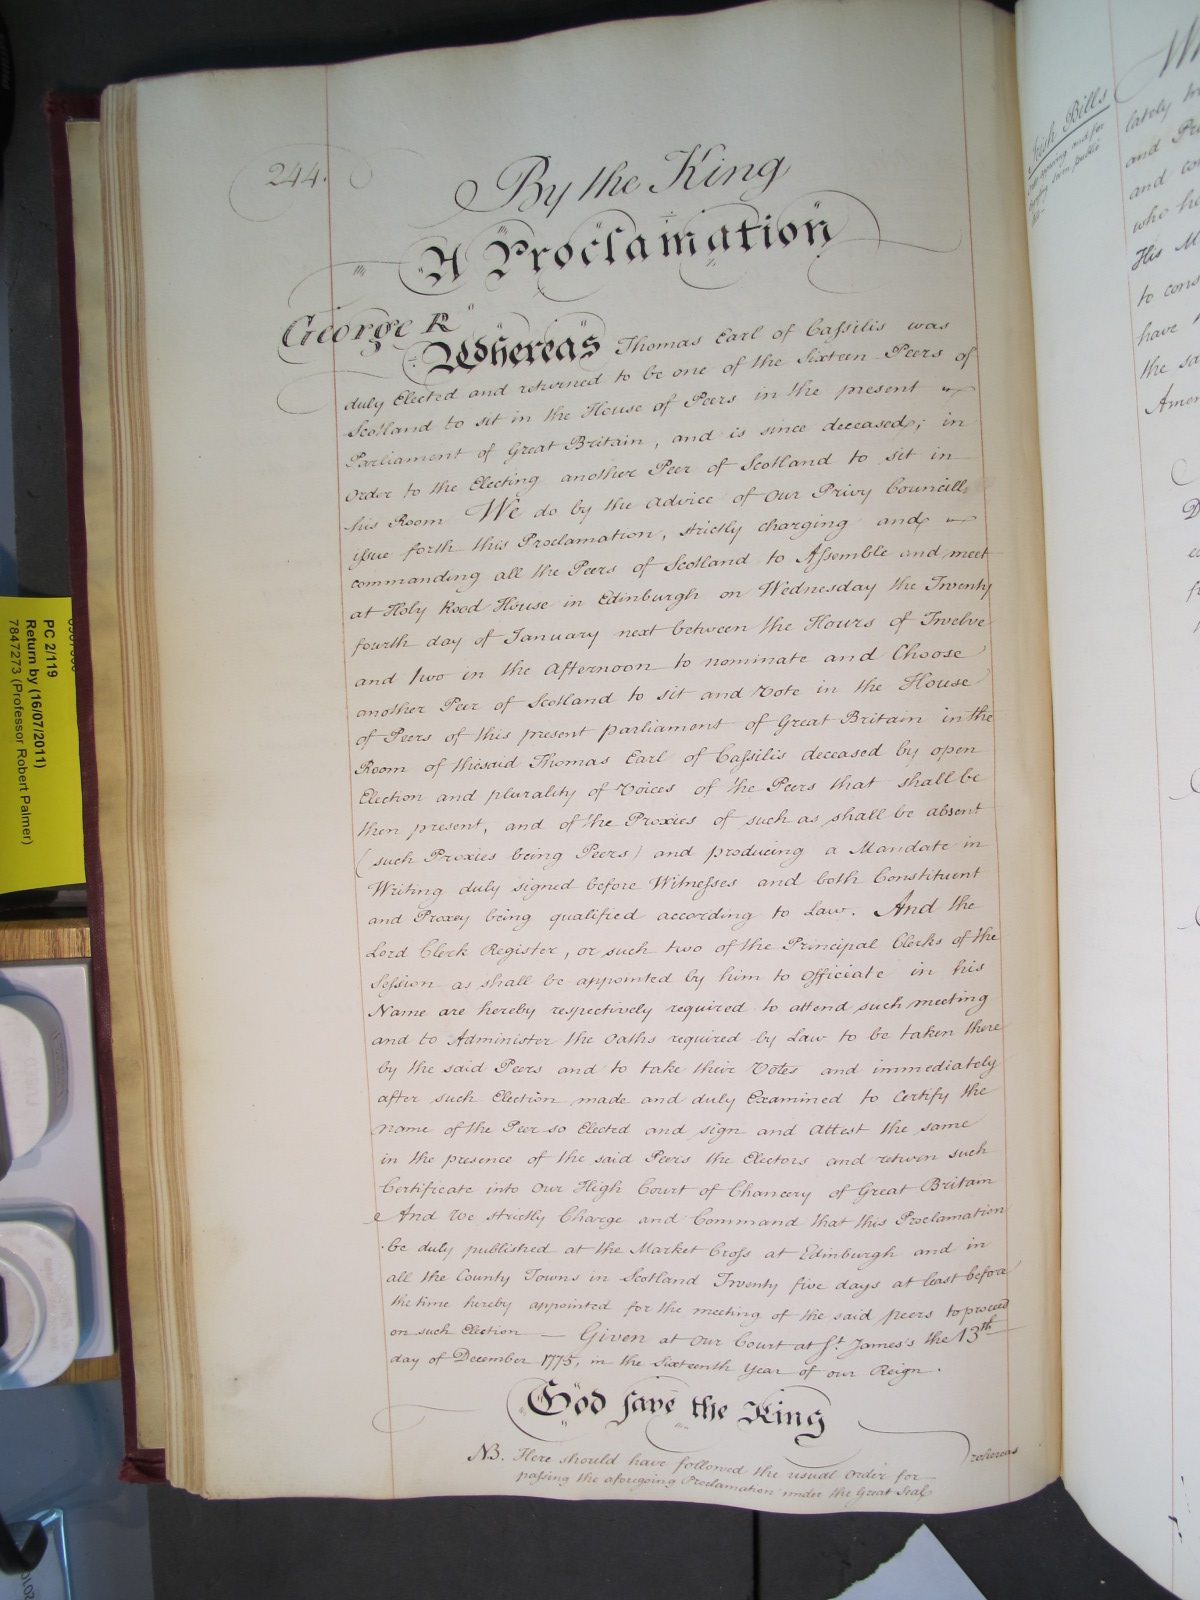 244.
By the King
A Proclamation
George R
Whereas Thomas Earl of Caſsilis was
duly Elected and returned to be one of the Sixteen Peers of
Scotland to sit in the House of Peers in the present
Parliament of Great Britain, and is since deceased; in
order to the Electing another Peer of Scotland to sit in
his Room We do by the Advice of Our Privy Councill
iſsue forth this Proclamation, strictly charging and
commanding all the Peers of Scotland to Aſsemble and meet
at Holy Rood House in Edinburgh on Wednesday the Twenty
fourth day of January next between the Hours of Twelve
and two in the Afternoon to nominate and Choose
another Peer of Scotland to sit and Vote in the House
of Peers of this present parliament of Great Britain in the
Room of thesaid Thomas Earl of Caſsilis deceased by open
Election and plurality of Voices of the Peers that shall be
then present, and of the Proxies of such as shall be absent
(such Proxies being Peers) and producing a Mandate in
Writing duly signed before Witneſses and both Constituent
and Proxey being qualified according to Law. And the
Lord Clerk Register, or such two of the Principal Clerks of the
Seſsion as shall be appointed by him to Officiate in his
Name are hereby respectively required to attend such meeting
and to Administer the Oaths required by Law to be taken there
by the said Peers and to take their Votes and immediately
after such Election made and duly Examined to Certify the
name of the Peer so Elected and sign and Attest the same
in the presence of the said Peers the Electors and return such
Certificate into Our High Court of Chancery of Great Britain
And We strictly Charge and Command that this Proclamation
be duly published at the Market Croſs at Edinburgh and in
all the County Towns in Scotland Twenty five days at least before
the time hereby appointed for the meeting of the said peers to proceed
on such Election — Given at Our Court at St. James's the 13th
day of December 1775, in the Sixteenth Year of our Reign.
God save the King
whereas
NB. Here should have followed the usual Order for
paſsing the aforegoing Proclamation under the Great Seal
PC 2/119
Return by (16/07/2011)
7847273 (Professor Robert Palmer)
Irish Bills
lately
and
and
who
His M
to cons
have
the sa
Amer